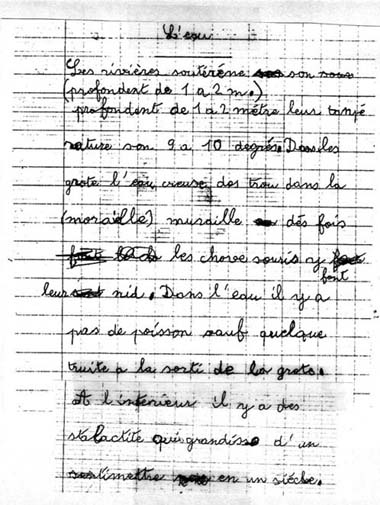 L'eau
Les rivières soutérène son sous
(profondent de 1 a 2 m.)
profondent de 1 a 2 mètre leur tanpé
rature son 9 a 10 degrés. Dans les
grote l'eau creuse des trou dans la
(moraille) muraille dés fois
les chove souris y
font
leur nid. Dans l'eau il y a
pas de poisson sauf quelque
truite a la sorti de la grote.
A l'interieur il y a des
stalactite qui grandisse d'un
santimettre en un siècle.